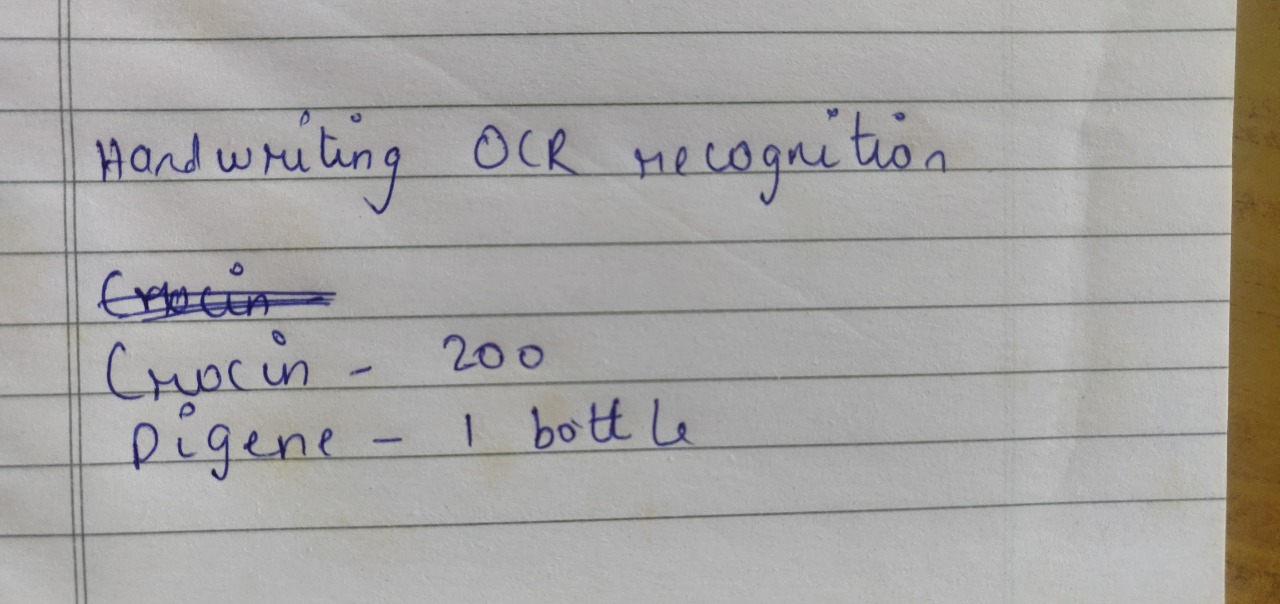 Handwriting OCR recognition
Crocin
Crocin - 200
Digene - 1 bottle